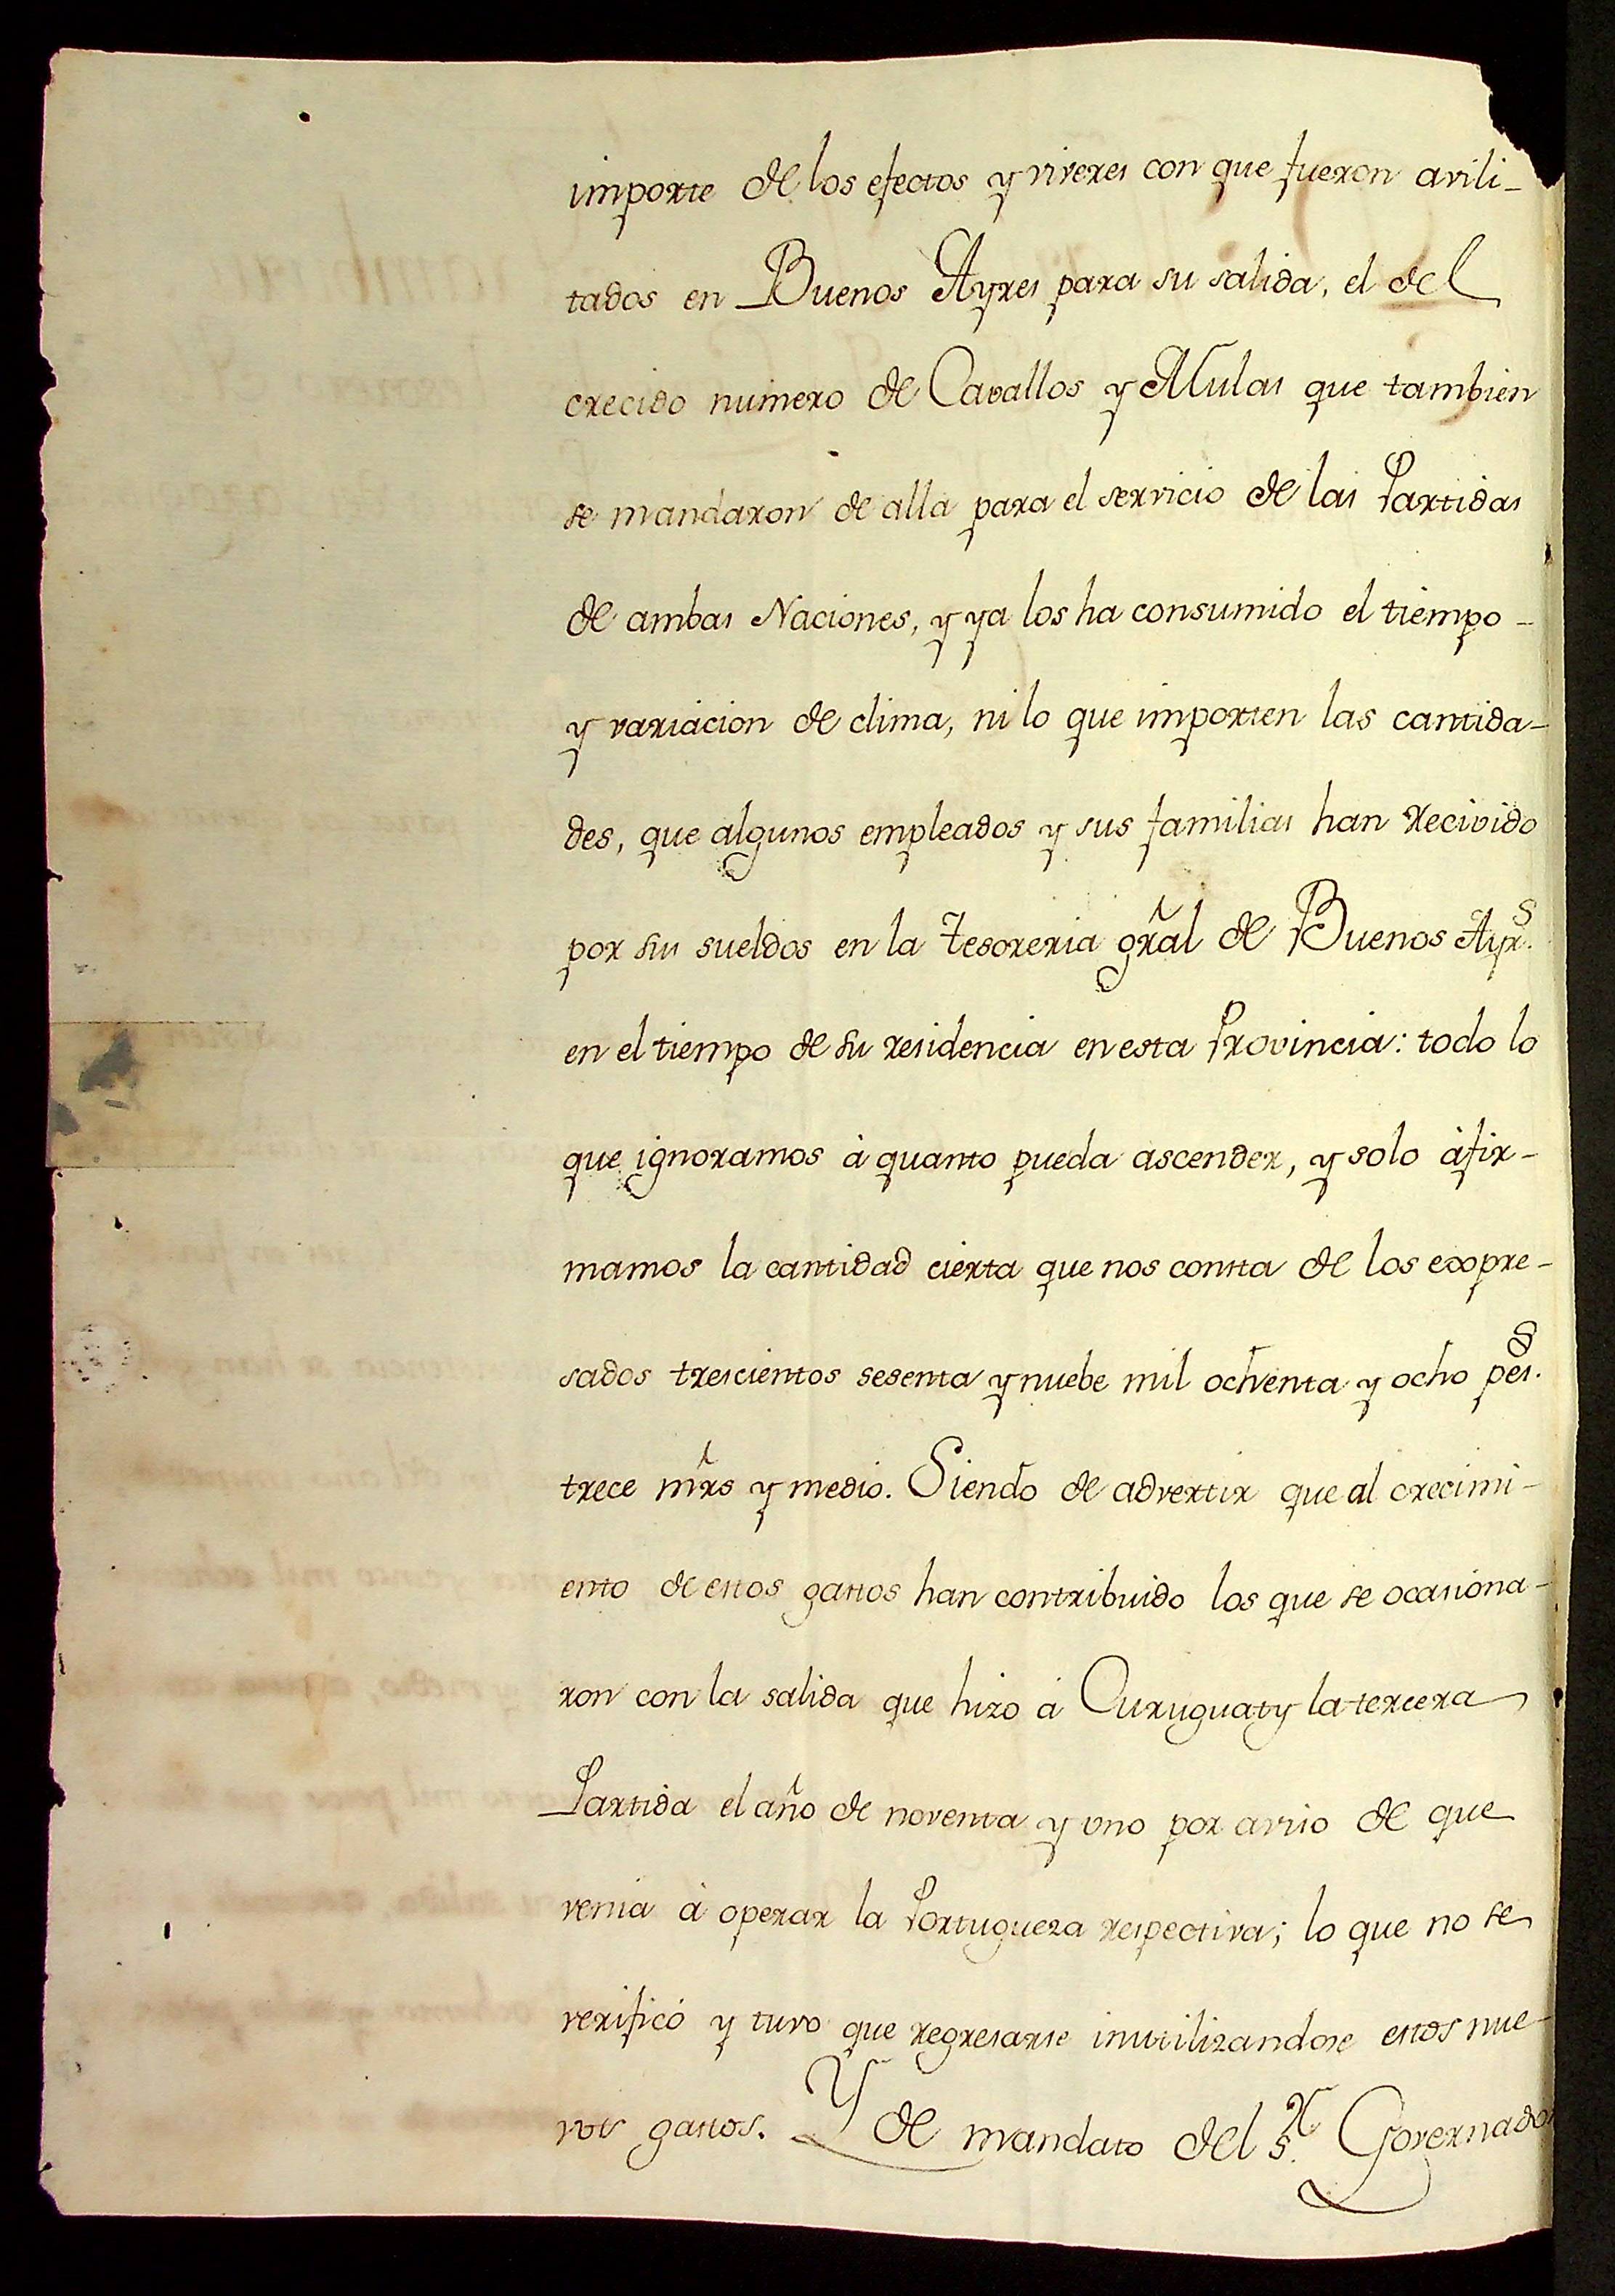 importe de los efectos y viveres con que fueron avili-
tados en Buenos Ayres para su salida, el del
crecido numero de Cavallos y Mulas que tambien
se mandaron de alla para el servicio de las Partidas
de ambas Naciones, y ya los ha consumido el tiempo -
y variacion de clima, ni lo que importen las cantida-
des, que algunos empleados y sus familias han recivido
por sus sueldos en la Tesoreria grãl de Buenos Ayrs.
en el tiempo de su residencia en esta Provincia: todo lo
que ignoramos à quanto pueda ascender, y solo àfir-
mamos la cantidad cierta que nos consta de los expre-
sados trescientos sesenta y nuebe mil ochenta y ocho pes.s
trece mr̃s y medio. Siendo de advertir que al crecimi-
ento de estos gastos han contribuido los que se ocasiona-
ron con la salida que hizo à Curuguaty la tercera
Partida el año de noventa y uno por aviso de que
venia à operar la Portugueza respectiva; lo que no se
verificó y tuvo que regresarse inutilizandose estos nue-
vos gastos. Y de mandato del S.r Governador